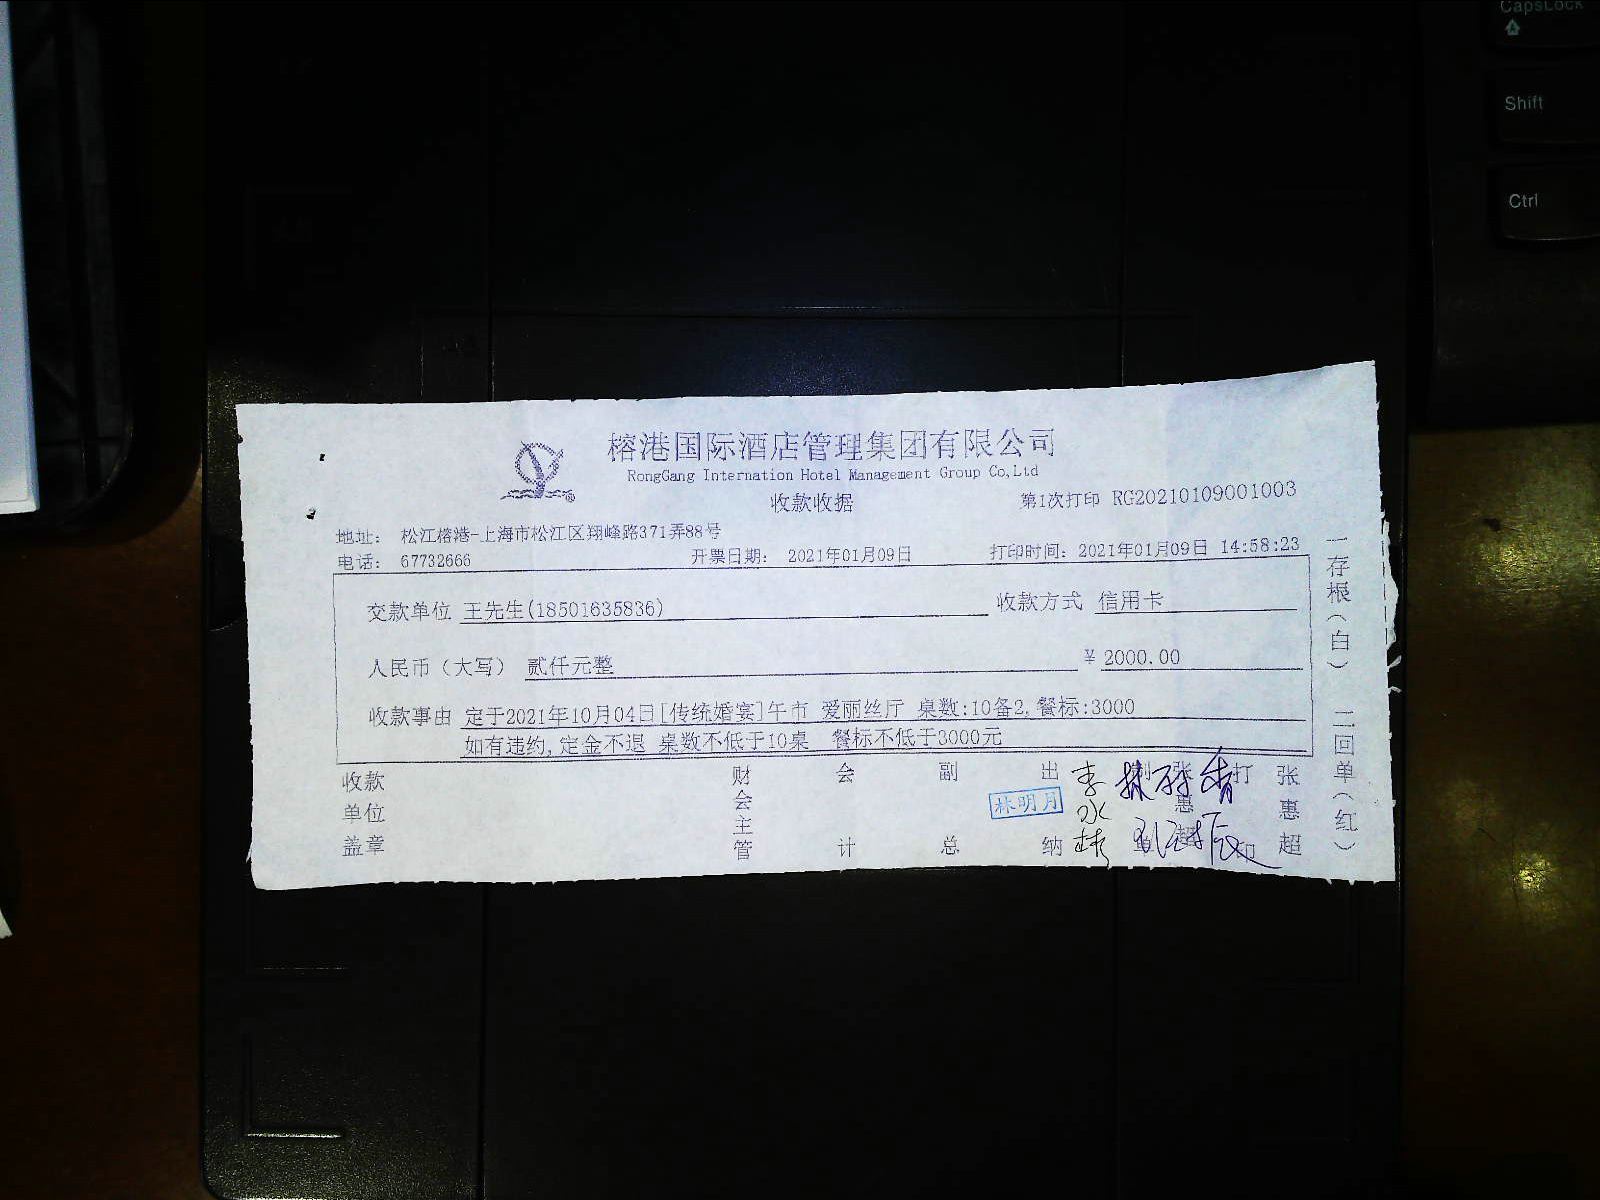 CapsLock
Shift
Ctrl
榕港国际酒店管理集团有限公司
RongGang Internation Hotel Management Group Co,Ltd
收款收据
第1次打印 RG20210109001003
地址: 松江榕港-上海市松江区翔峰路371弄88号
电话: 67732666 开票日期: 2021年01月09日 打印时间: 2021年01月09日 14:58:23
交款单位 王先生(18501635836) 收款方式 信用卡
人民币（大写） 贰仟元整 ¥ 2000.00
收款事由 定于2021年10月04日[传统婚宴]午市 爱丽丝厅 桌数:10备2,餐标:3000
如有违约,定金不退 桌数不低于10桌 餐标不低于3000元
收款单位盖章 财会主管 会计 副总 出纳 李冰 林明月 制单 张惠超 打印 张惠超
一存根（白） 二回单（红）